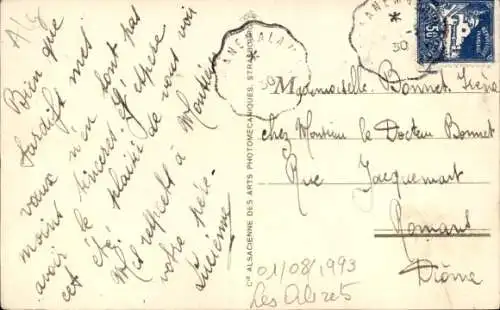 Alg
Bien que
tardifs mes
vœux n'en sont pas
moins sincères. J'espère
avoir le plaisir de vous voir
cet été.
Mes respects à Monsieur
votre père.
Lucienne
Cie ALSACIENNE DES ARTS PHOTOMÉCANIQUES, STRASBOURG
50
Mademoiselle Bonnet Irène
chez Monsieur le Docteur Bonnet
Rue Jacquemart
Romans
Drôme
01/08/1993
Les Abrets